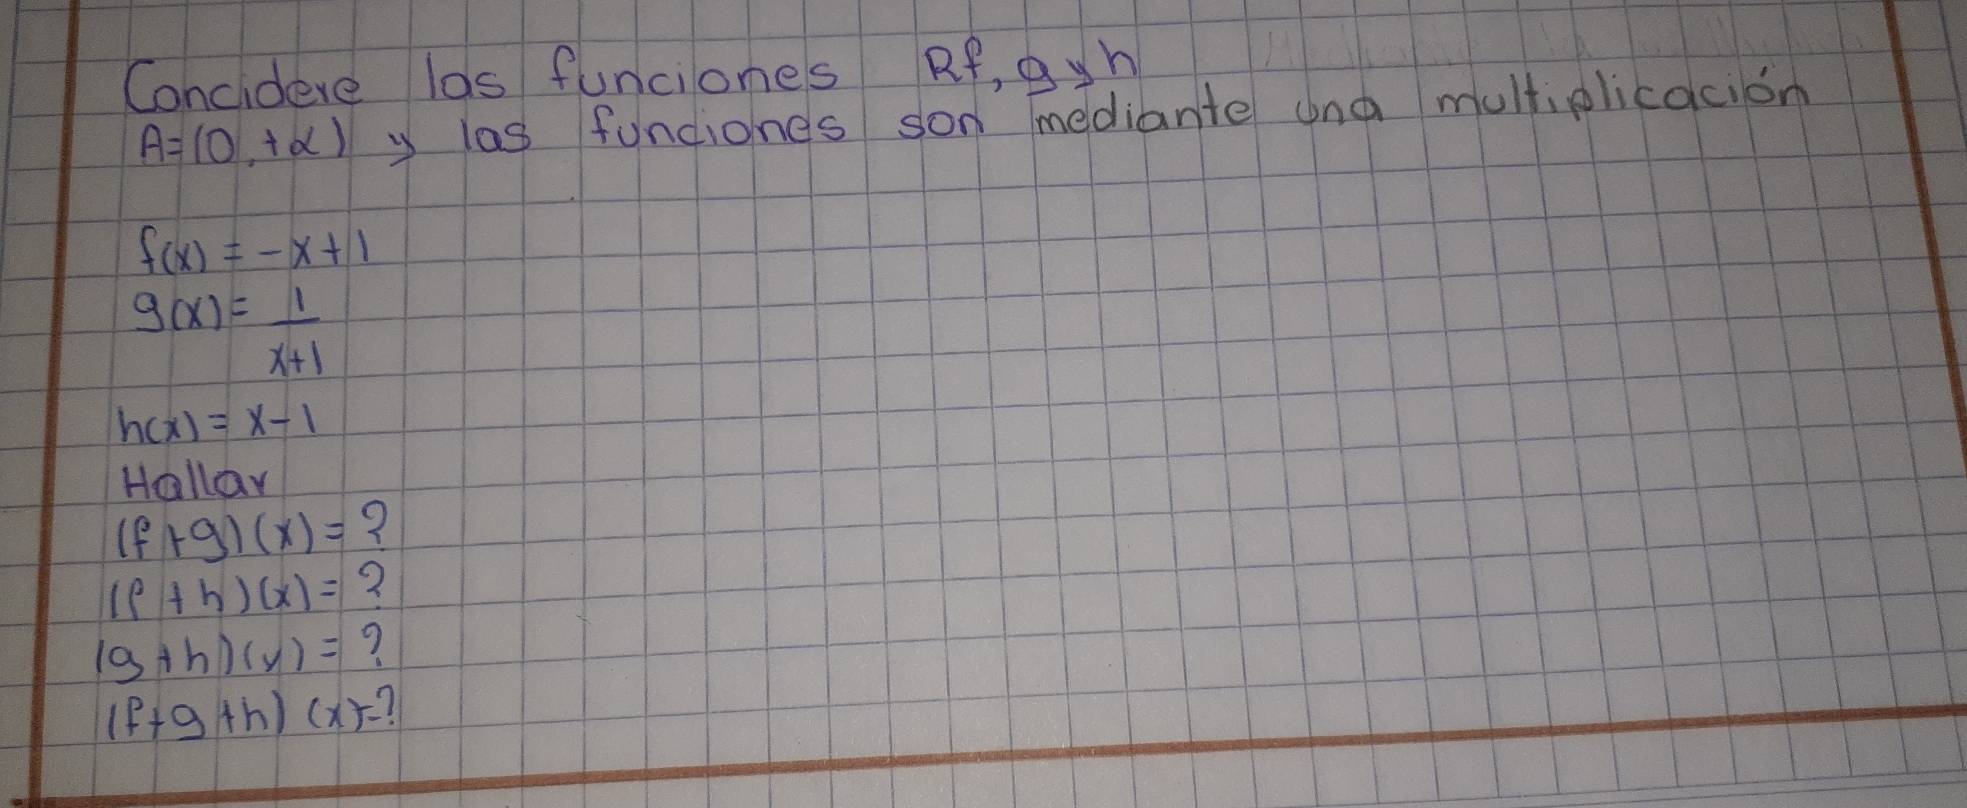 Concidere las funciones Rf, g y h
A=(0,+α) y las funciones son mediante una multiplicación
f(x) = -x+1
g(x) = 1
x+1
h(x) = x-1
Hallar
(f+g)(x) = ?
(f+h)(x) = ?
(g+h)(x) = ?
(f+g+h) (x)=?